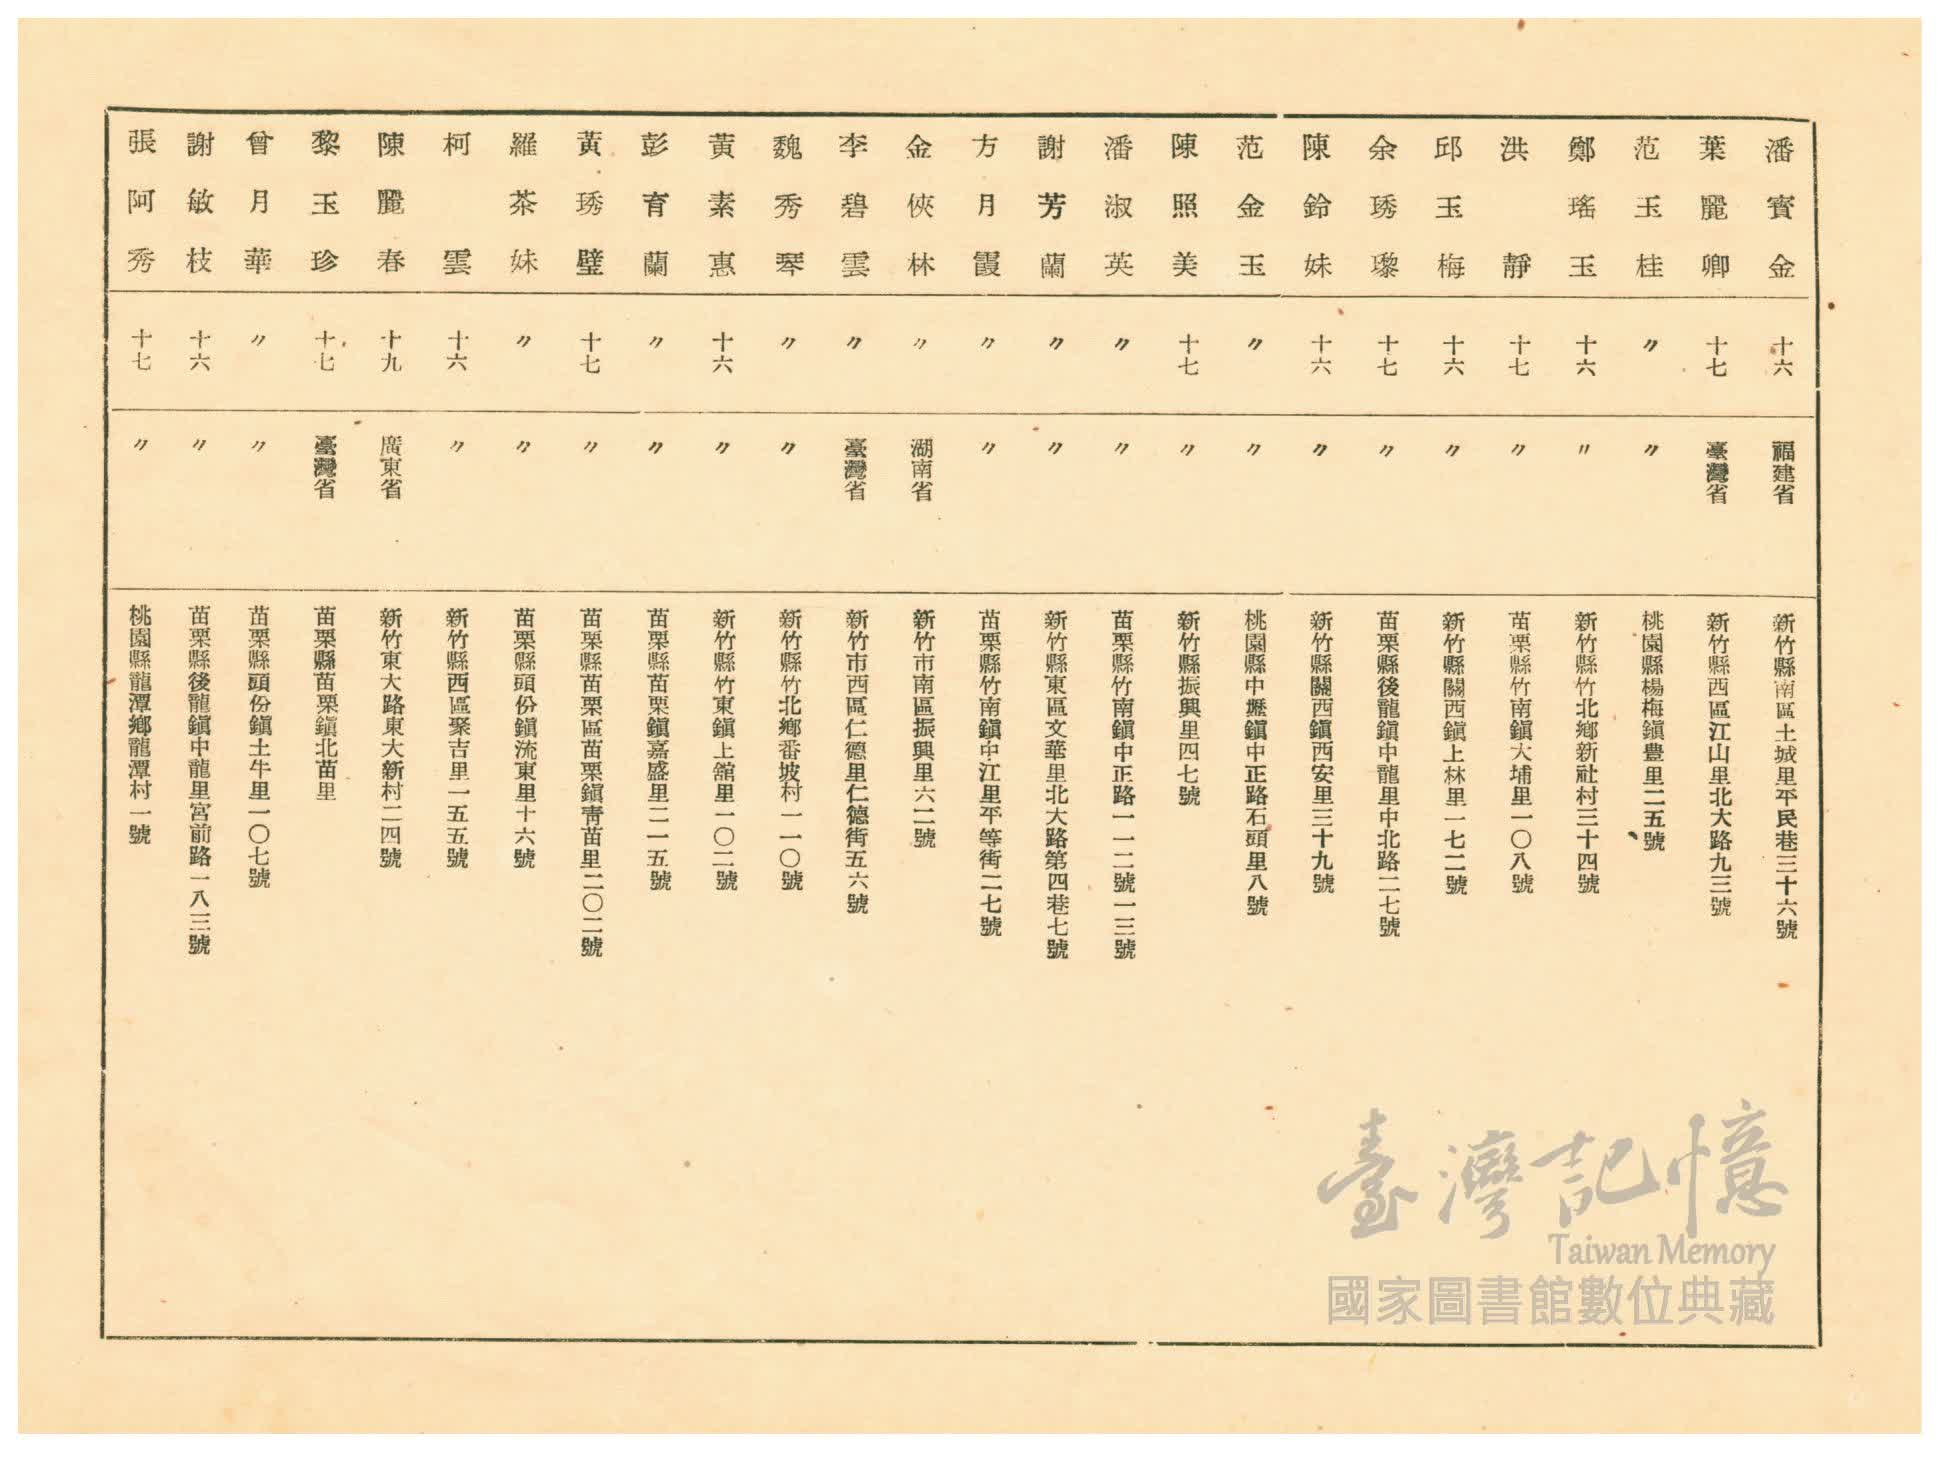 潘寶金 十六 福建省 新竹縣南區土城里平民巷三十六號
葉麗卿 十七 臺灣省 新竹縣西區江山里北大路九三號
范玉桂 〃 〃 桃園縣楊梅鎮豊里二五號
鄭瑤玉 十六 〃 新竹縣竹北鄉新社村三十四號
洪靜 十七 〃 苗栗縣竹南鎮大埔里一〇八號
邱玉梅 十六 〃 新竹縣關西鎮上林里一七二號
余琇瓈 十七 〃 苗栗縣後龍鎮中龍里中北路二七號
陳鈴妹 十六 〃 新竹縣關西鎮西安里三十九號
范金玉 〃 〃 桃園縣中壢鎮中正路石頭里八號
陳照美 十七 〃 新竹縣振興里四七號
潘淑英 〃 〃 苗栗縣竹南鎮中正路一一二號一三號
謝芳蘭 〃 〃 新竹縣東區文華里北大路第四巷七號
方月霞 〃 〃 苗栗縣竹南鎮中江里平等街二七號
金俠林 〃 湖南省 新竹市南區振興里六二號
李碧雲 〃 臺灣省 新竹市西區仁德里仁德街五六號
魏秀琴 〃 〃 新竹縣竹北鄉番坡村一一〇號
黃素惠 十六 〃 新竹縣竹東鎮上舘里一〇二號
彭育蘭 〃 〃 苗栗縣苗栗鎮嘉盛里二一五號
黃琇璧 十七 〃 苗栗縣苗栗區苗栗鎮靑苗里二〇二號
羅茶妹 〃 〃 苗栗縣頭份鎮流東里十六號
柯雲 十六 〃 新竹縣西區聚吉里一五五號
陳麗春 十九 廣東省 新竹東大路東大新村二四號
黎玉珍 十七 臺灣省 苗栗縣苗栗鎮北苗里
曾月華 〃 〃 苗栗縣頭份鎮土牛里一〇七號
謝敏枝 十六 〃 苗栗縣後龍鎮中龍里宮前路一八三號
張阿秀 十七 〃 桃園縣龍潭鄉龍潭村一號
臺灣記憶
Taiwan Memory
國家圖書館數位典藏